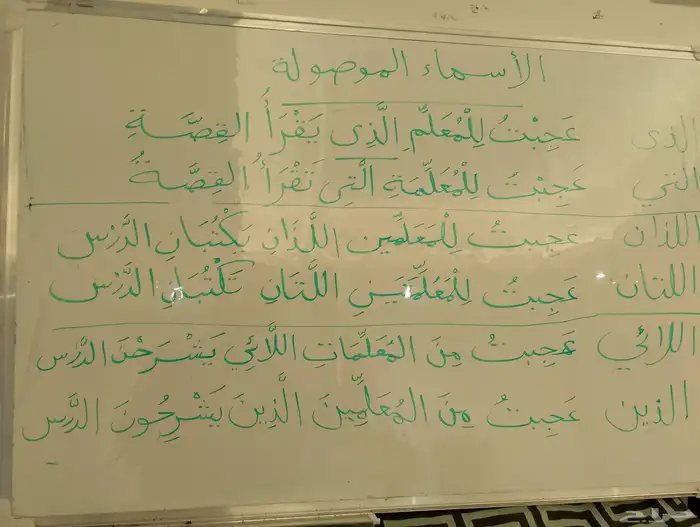 الأسماء الموصولة
الذي عَجِبْتُ لِلْمُعَلِّمِ الَّذِي يَقْرَأُ القِصَّةِ
التي عَجِبْتُ لِلْمُعَلِّمَةِ الَّتِي تَقْرَأُ القِصَّةُ
اللذان عَجِبتُ لِلْمَعَلِّمين اللَّذَانِ يَكْتُبَانِ الدَّرْس
اللتان عَجِبتُ لِلْمُعَلِّمَتَينِ اللَّتَانِ تَكْتُبَانِ الدَّرْس
اللائي عَجِبتُ مِنَ المُعَلِّمَاتِ اللَّائِي يَشْرَحْنَ الدَّرس
الذين عَجِبتُ مِنَ المُعَلِّمِينَ الَّذِينَ يَشْرِحُونَ الدَّرْس
حراج